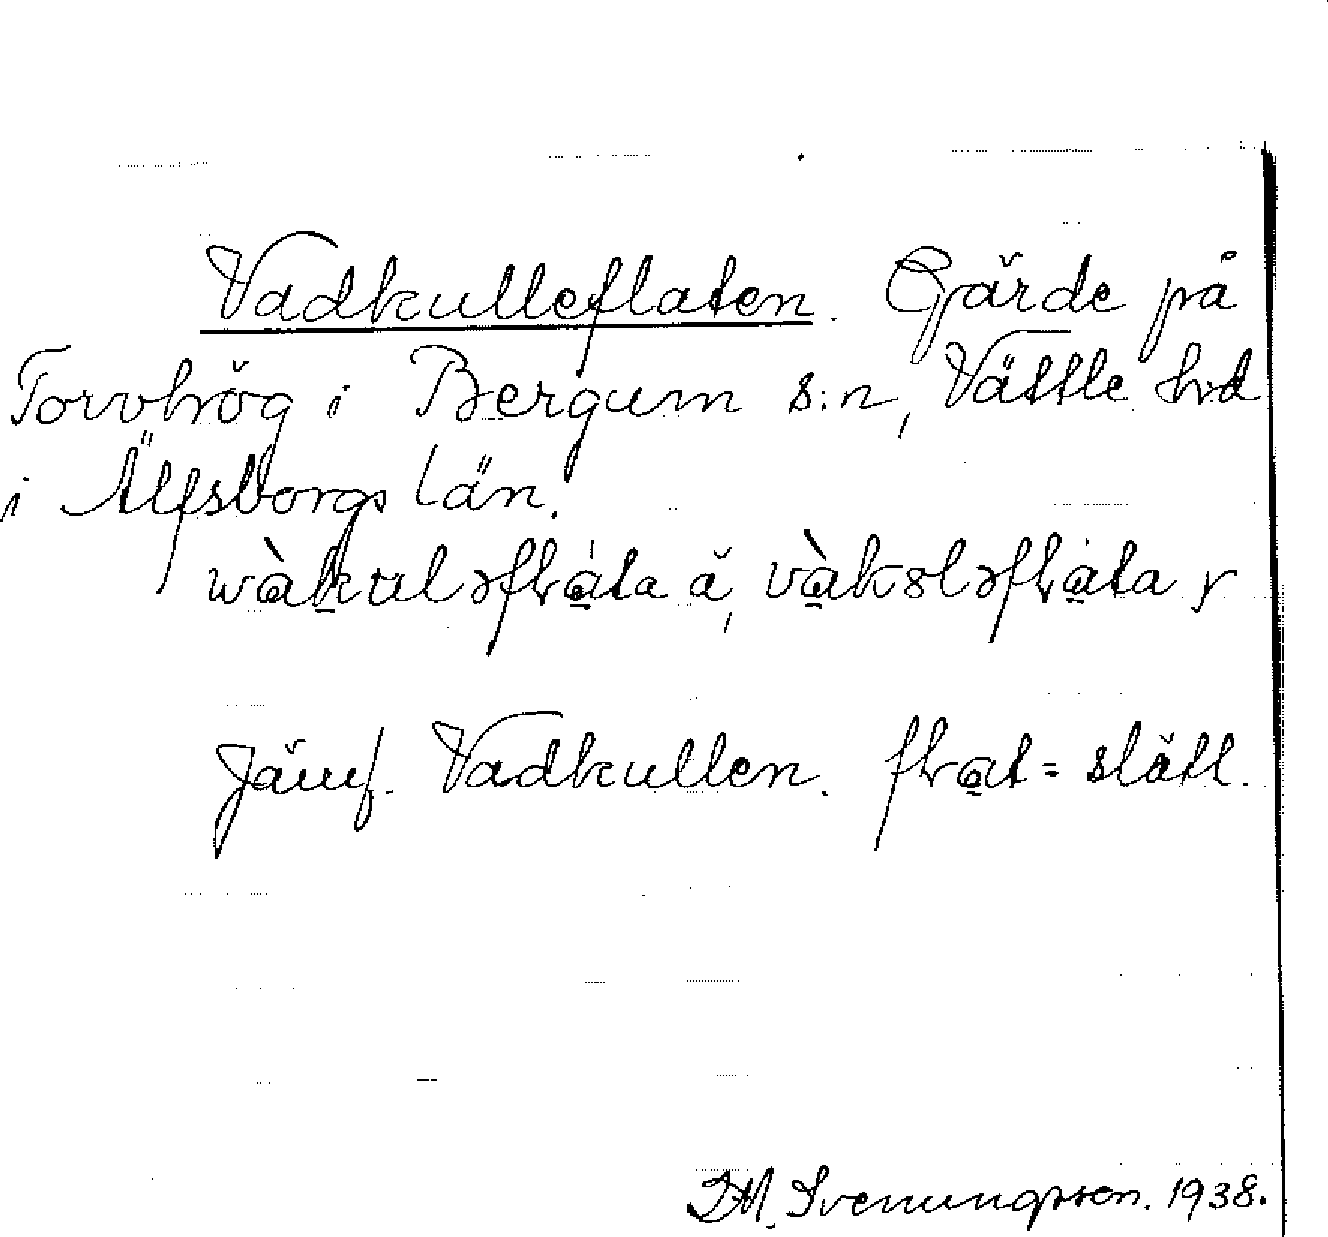 Vadkulleflaten. Gärde på
Torvhög i Bergum s:n, Vättle hd
i Älfsborgs län.
Jämf. Vadkullen. = slätt.
D.M. Svenungsson. 1938.